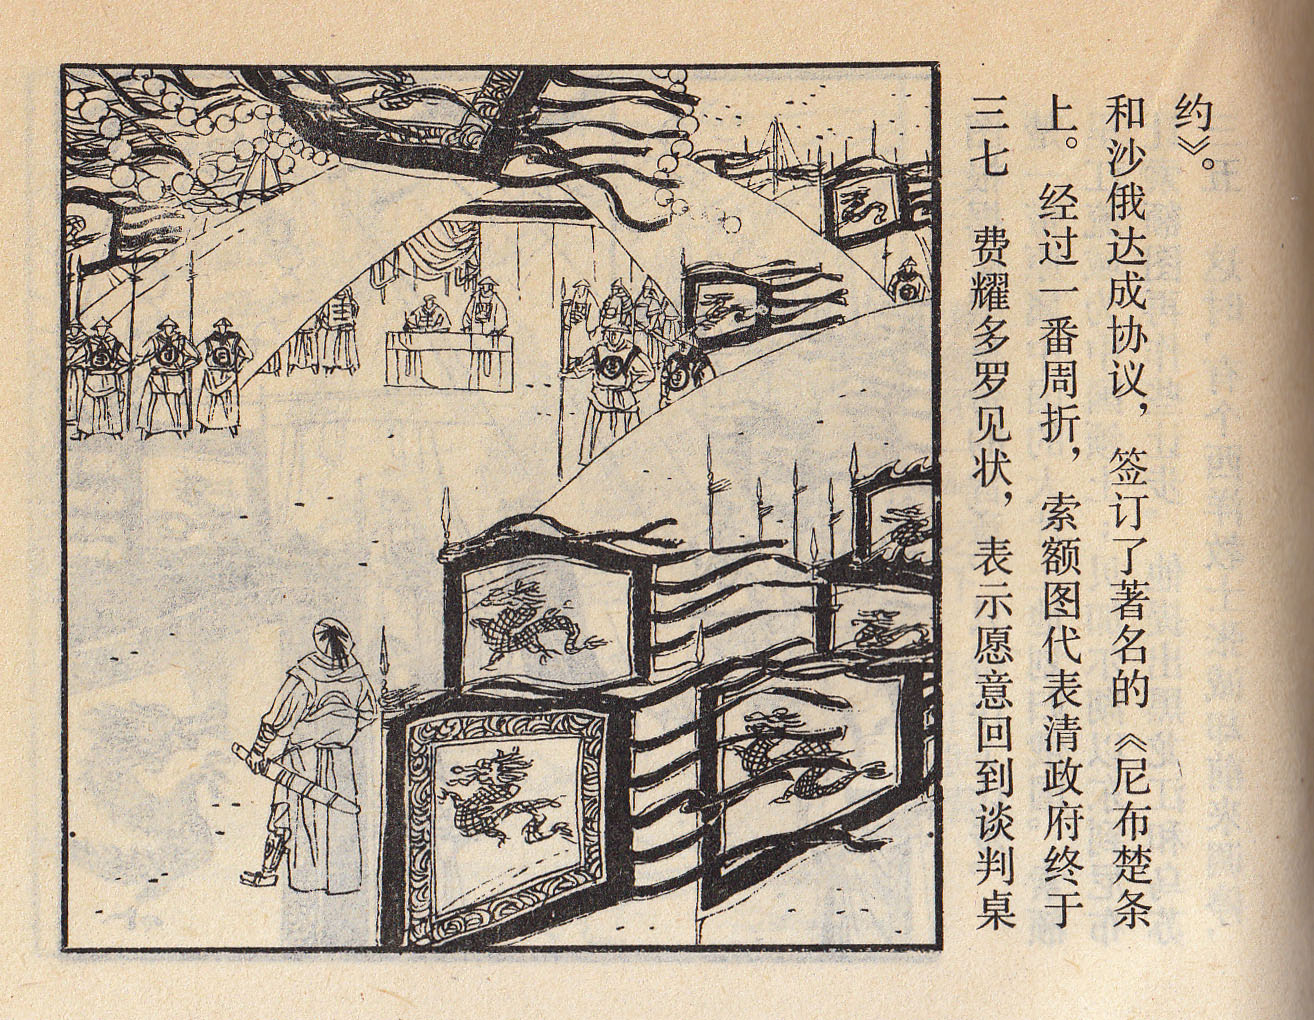 三七 费耀多罗见状，表示愿意回到谈判桌
上。经过一番周折，索额图代表清政府终于
和沙俄达成协议，签订了著名的《尼布楚条
约》。